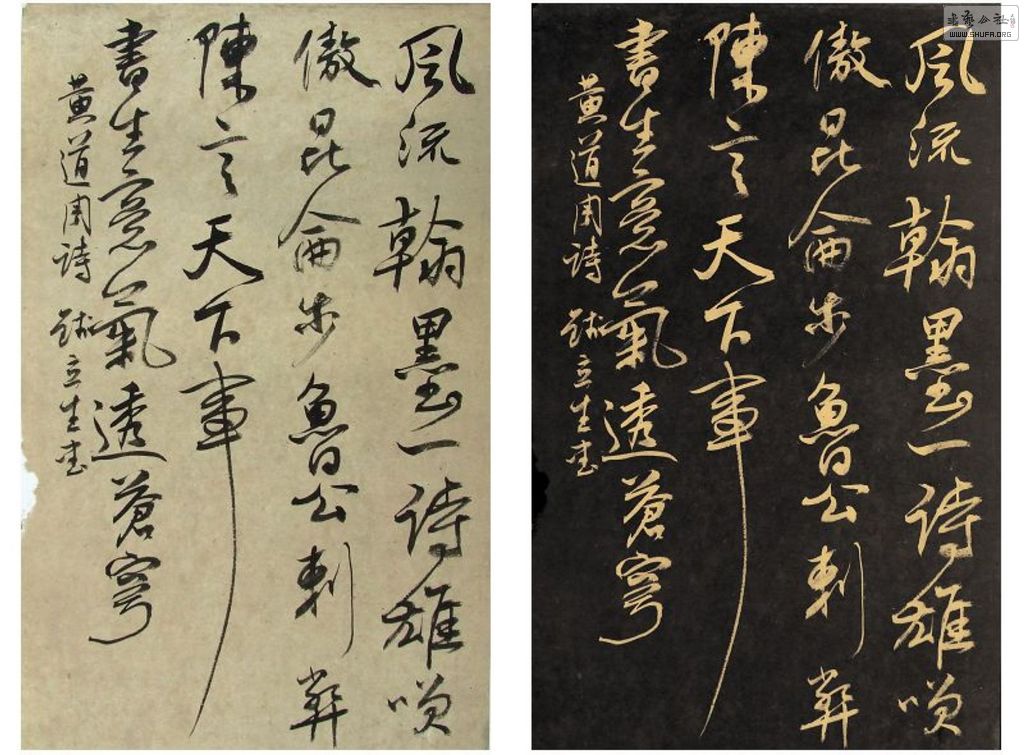 風流翰墨一詩雄咲
傲昆侖步魯公刺弊
陳言天下事
書生意氣透蒼穹
黄道周詩 立生書
書藝公社
www.SHUFA.ORG
風流翰墨一詩雄咲
傲昆侖步魯公刺弊
陳言天下事
書生意氣透蒼穹
黄道周詩 立生書